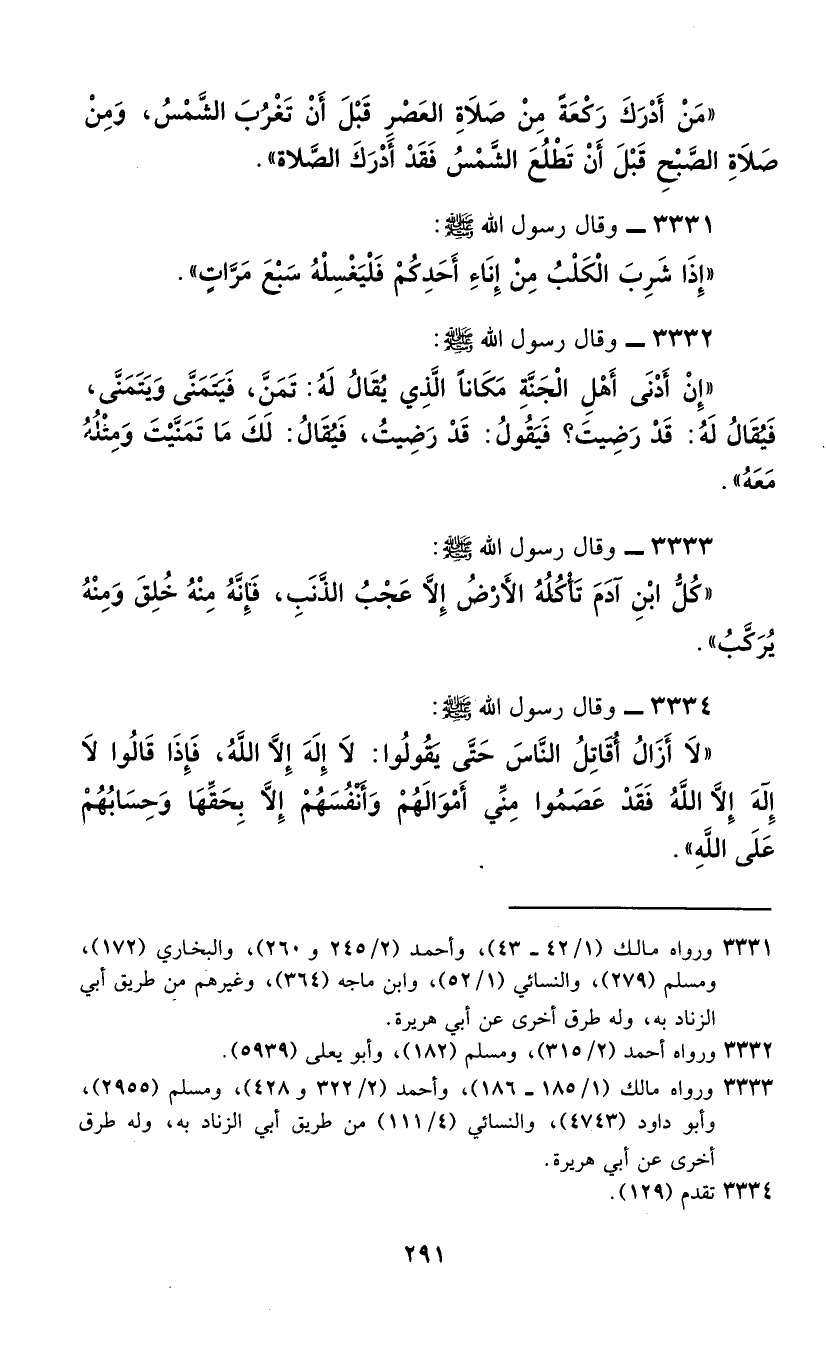 «مَنْ أَدْرَكَ رَكْعَةً مِنْ صَلَاةِ العَصْرِ قَبْلَ أَنْ تَغْرُبَ الشَّمْسُ، وَمِنْ
صَلَاةِ الصَّبْحِ قَبْلَ أَنْ تَطْلُعَ الشَّمْسُ فَقَدْ أَدْرَكَ الصَّلاة».
٣٣٣١ ــ وقال رسول الله ﷺ:
«إِذَا شَرِبَ الْكَلْبُ مِنْ إِنَاءِ أَحَدِكُمْ فَلْيَغْسِلْهُ سَبْعَ مَرَّاتٍ».
٣٣٣٢ ــ وقال رسول الله ﷺ:
«إِنْ أَدْنَى أَهْلِ الْجَنَّةِ مَكَاناً الَّذِي يُقَالُ لَهُ: تَمَنَّ، فَيَتَمَنَّى وَيَتَمَنَّى،
فَيُقَالُ لَهُ: قَدْ رَضِيتَ؟ فَيَقُولُ: قَدْ رَضِيتُ، فَيُقَالُ: لَكَ مَا تَمَنَّيْتَ وَمِثْلُهُ
مَعَهُ».
٣٣٣٣ ــ وقال رسول الله ﷺ:
«كُلُّ ابْنِ آدَمَ تَأْكُلُهُ الأَرْضُ إِلاَّ عَجْبُ الذَّنَبِ، فَإِنَّهُ مِنْهُ خُلِقَ وَمِنْهُ
يُرَكَّبُ».
٣٣٣٤ ــ وقال رسول الله ﷺ:
«لَا أَزَالُ أُقَاتِلُ النَّاسَ حَتَّى يَقُولُوا: لَا إِلَهَ إِلاَّ اللَّهُ، فَإِذَا قَالُوا لَا
إِلَهَ إِلاَّ اللَّهُ فَقَدْ عَصَمُوا مِنِّي أَمْوَالَهُمْ وَأَنْفُسَهُمْ إِلاَّ بِحَقِّهَا وَحِسَابُهُمْ
عَلَى اللَّهِ».
٣٣٣١ ورواه مالك (١/ ٤٢ ـ ٤٣)، وأحمد (٢/ ٢٤٥ و ٢٦٠)، والبخاري (١٧٢)،
ومسلم (٢٧٩)، والنسائي (١/ ٥٢)، وابن ماجه (٣٦٤)، وغيرهم من طريق أبي
الزناد به، وله طرق أخرى عن أبي هريرة.
٣٣٣٢ ورواه أحمد (٢/ ٣١٥)، ومسلم (١٨٢)، وأبو يعلى (٥٩٣٩).
٣٣٣٣ ورواه مالك (١/ ١٨٥ ـ ١٨٦)، وأحمد (٢/ ٣٢٢ و ٤٢٨)، ومسلم (٢٩٥٥)،
وأبو داود (٤٧٤٣)، والنسائي (٤/ ١١١) من طريق أبي الزناد به، وله طرق
أخرى عن أبي هريرة.
٣٣٣٤ تقدم (١٢٩).
٢٩١